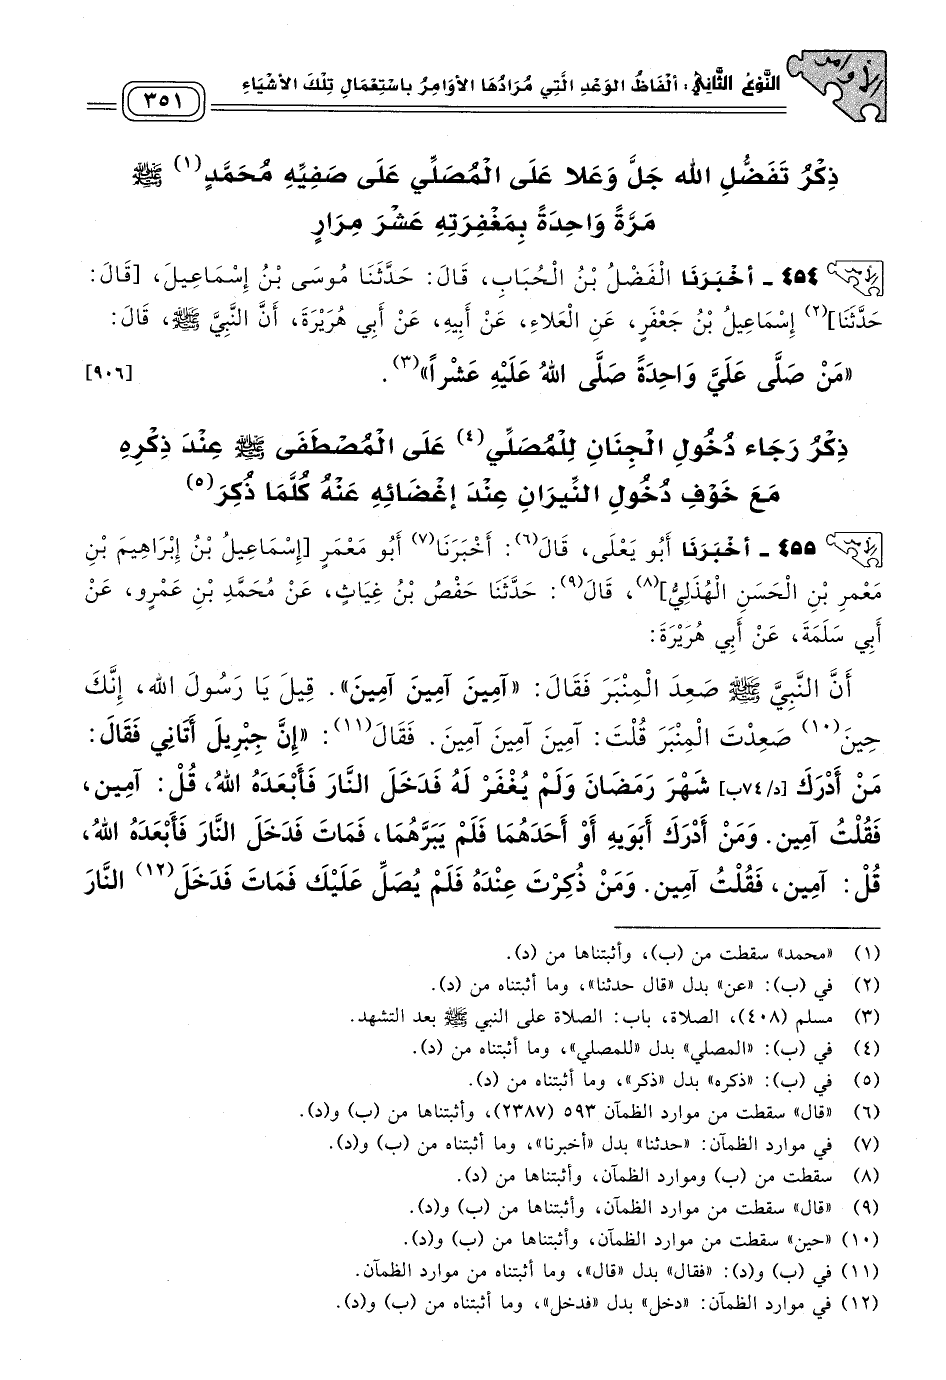 الأوامر
النَّوْعُ الثَّانِي: أَلْفَاظُ الوَعْدِ الَّتِي مُرَادُهَا الأَوَامِرُ بِاسْتِعْمَالِ تِلْكَ الأَشْيَاءِ
٣٥١
ذِكْرُ تَفَضُّلِ اللهِ جَلَّ وَعَلا عَلَى الْمُصَلِّي عَلَى صَفِيِّهِ مُحَمَّدٍ(١) ﷺ
مَرَّةً وَاحِدَةً بِمَغْفِرَتِهِ عَشْرَ مِرَارٍ
٤٥٤ - أَخْبَرَنَا الْفَضْلُ بْنُ الْحُبَابِ، قَالَ: حَدَّثَنَا مُوسَى بْنُ إِسْمَاعِيلَ، [قَالَ:
حَدَّثَنَا](٢) إِسْمَاعِيلُ بْنُ جَعْفَرٍ، عَنِ الْعَلاءِ، عَنْ أَبِيهِ، عَنْ أَبِي هُرَيْرَةَ، أَنَّ النَّبِيَّ ﷺ، قَالَ:
«مَنْ صَلَّى عَلَيَّ وَاحِدَةً صَلَّى اللهُ عَلَيْهِ عَشْراً»(٣). [٩٠٦]
ذِكْرُ رَجَاءِ دُخُولِ الْجِنَانِ لِلْمُصَلِّي(٤) عَلَى الْمُصْطَفَى ﷺ عِنْدَ ذِكْرِهِ
مَعَ خَوْفِ دُخُولِ النِّيرَانِ عِنْدَ إغْضَائِهِ عَنْهُ كُلَّمَا ذُكِرَ(٥)
٤٥٥ - أَخْبَرَنَا أَبُو يَعْلَى، قَالَ(٦): أَخْبَرَنَا(٧) أَبُو مَعْمَرٍ [إِسْمَاعِيلُ بْنُ إِبْرَاهِيمَ بْنِ
مَعْمَرِ بْنِ الْحَسَنِ الْهُذَلِيُّ](٨)، قَالَ(٩): حَدَّثَنَا حَفْصُ بْنُ غِيَاثٍ، عَنْ مُحَمَّدِ بْنِ عَمْرٍو، عَنْ
أَبِي سَلَمَةَ، عَنْ أَبِي هُرَيْرَةَ:
أَنَّ النَّبِيَّ ﷺ صَعِدَ الْمِنْبَرَ فَقَالَ: «آمِينَ آمِينَ آمِينَ». قِيلَ يَا رَسُولَ اللهِ، إِنَّكَ
حِينَ(١٠) صَعِدْتَ الْمِنْبَرَ قُلْتَ: آمِينَ آمِينَ آمِينَ. فَقَالَ(١١): «إِنَّ جِبْرِيلَ أَتَانِي فَقَالَ:
مَنْ أَدْرَكَ [د/٧٤ب] شَهْرَ رَمَضَانَ وَلَمْ يُغْفَرْ لَهُ فَدَخَلَ النَّارَ فَأَبْعَدَهُ اللهُ، قُلْ: آمِين،
فَقُلْتُ آمِين. وَمَنْ أَدْرَكَ أَبَوَيْهِ أَوْ أَحَدَهُمَا فَلَمْ يَبَرَّهُمَا، فَمَاتَ فَدَخَلَ النَّارَ فَأَبْعَدَهُ اللهُ،
قُلْ: آمِين، فَقُلْتُ آمِين. وَمَنْ ذُكِرْتَ عِنْدَهُ فَلَمْ يُصَلِّ عَلَيْكَ فَمَاتَ فَدَخَلَ(١٢) النَّارَ
(١) «محمد» سقطت من (ب)، وأثبتناها من (د).
(٢) في (ب): «عن» بدل «قال حدثنا»، وما أثبتناه من (د).
(٣) مسلم (٤٠٨)، الصلاة، باب: الصلاة على النبي ﷺ بعد التشهد.
(٤) في (ب): «المصلي» بدل «للمصلي»، وما أثبتناه من (د).
(٥) في (ب): «ذكره» بدل «ذكر»، وما أثبتناه من (د).
(٦) «قال» سقطت من موارد الظمآن ٥٩٣ (٢٣٨٧)، وأثبتناها من (ب) و(د).
(٧) في موارد الظمآن: «حدثنا» بدل «أخبرنا»، وما أثبتناه من (ب) و(د).
(٨) سقطت من (ب) وموارد الظمآن، وأثبتناها من (د).
(٩) «قال» سقطت من موارد الظمآن، وأثبتناها من (ب) و(د).
(١٠) «حين» سقطت من موارد الظمآن، وأثبتناها من (ب) و(د).
(١١) في (ب) و(د): «فقال» بدل «قال»، وما أثبتناه من موارد الظمآن.
(١٢) في موارد الظمآن: «دخل» بدل «فدخل»، وما أثبتناه من (ب) و(د).